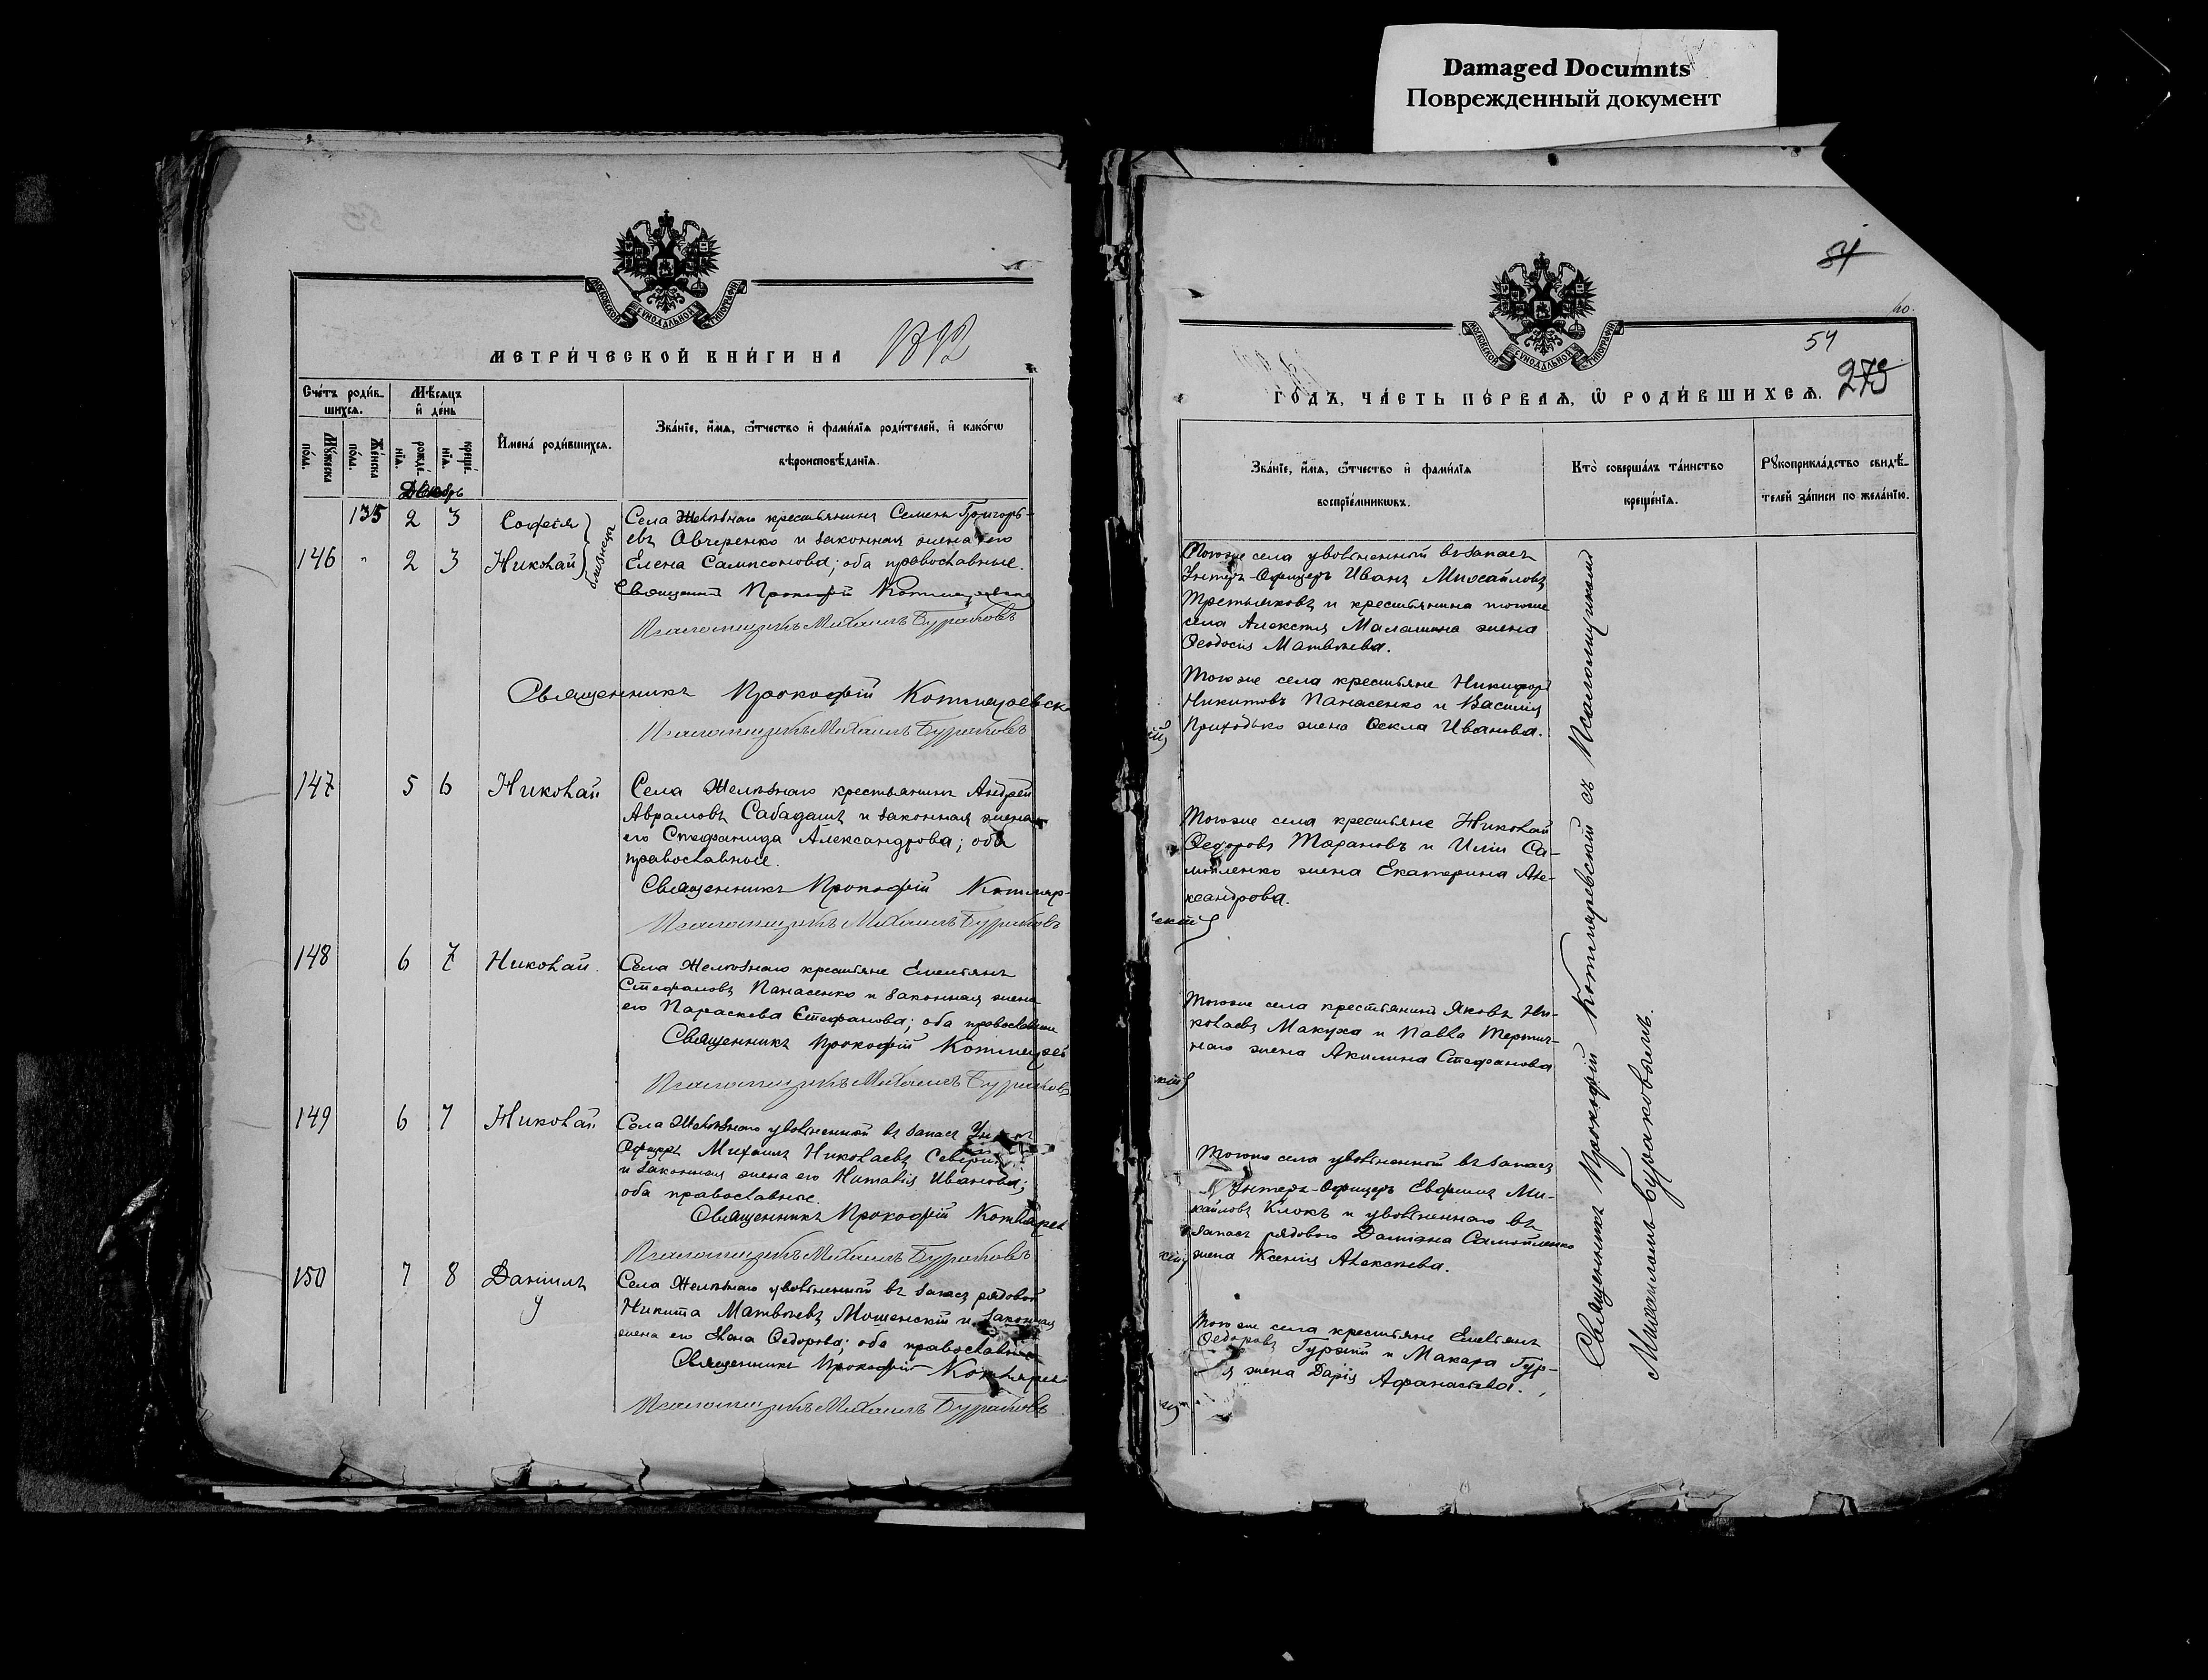 Damaged Documnts
Поврежденный документ
МОСКОВСКОЙ СѴНОДАЛЬНОЙ ТИПОГРАФІИ
МЕТРИ́ЧЕСКОЙ КНИ́ГИ НА 1892
Сче́тъ роди́в-
шихсѧ.
Мѣ́сѧцъ
и҆ де́нь
Мꙋ́жеска
по́ла.
Же́нска
по́ла.
рожде́-
нїѧ.
креще́-
нїѧ.
И҆мена̀ роди́вшихсѧ.
Зва́нїе, и҆́мѧ, ѻ҆́тчество и҆ фами́лїѧ роди́телей, и҆ како́гѡ
вѣроисповѣ́данїѧ.
Декабрь
135 2 3 Софія
146 " 2 3 Николай
близнецы
Села Желѣзнаго крестьянинъ Семенъ Григорь-
евъ Овчеренко и законная жена его
Елена Сампсонова; оба православные.
Священникъ Прокофій Котляревскій
Псаломщикъ Михаилъ Бураковъ
Священникъ Прокофій Котляревскій
Псаломщикъ Михаилъ Бураковъ
147 5 6 Николай
Села Желѣзнаго крестьянинъ Андрей
Аврамовъ Сабадашъ и законная жена
его Стефанида Александрова; оба
православные.
Священникъ Прокофій Котляревскій
Псаломщикъ Михаилъ Бураковъ
148 6 7 Николай.
Села Желѣзнаго крестьяне Емельянъ
Стефановъ Панасенко и законная жена
его Параскева Стефанова; оба православные
Священникъ Прокофій Котляревскій
Псаломщикъ Михаилъ Бураковъ
149 6 7 Николай
Села Желѣзнаго уволенный въ запасъ Унтеръ
Офицеръ Михаилъ Николаевъ
и законная жена его Наталія Иванова;
оба православные.
Священникъ Прокофій Котляревскій
Псаломщикъ Михаилъ Бураковъ
150 7 8 Даніилъ
Села Желѣзнаго уволенный въ запасъ рядовой
Никита Матвѣевъ Мошенскій и законная
жена его Анна Ѳедорова; оба православные
Священникъ Прокофій Котляревскій
Псаломщикъ Михаилъ Бураковъ
84
54
275
МОСКОВСКОЙ СѴНОДАЛЬНОЙ ТИПОГРАФІИ
ГО́ДЪ, ЧА́СТЬ ПЕ́РВАѦ, Ѡ҆ РОДИ́ВШИХСѦ.
Зва́нїе, и҆́мѧ, ѻ҆́тчество и҆ фами́лїѧ
воспрїе́мникѡвъ.
Кто̀ соверша́лъ та́инство
креще́нїѧ.
Рꙋкоприкла́дство свидѣ́-
телей за́писи по жела́нїю.
Того же села уволенный въ запасъ
Унтеръ-Офицеръ Иванъ Михайловъ
Третьяковъ и крестьянина того же
села Алексѣя Малашина жена
Ѳеодосія Матвѣева.
Того же села крестьяне Никифоръ
Никитовъ Панасенко и Василія
Приходько жена Ѳекла Иванова.
Того же села крестьяне Николай
Ѳедоровъ Тарановъ и Иліи Са-
мойленко жена Екатерина Але-
ксандрова.
Того же села крестьянинъ Яковъ Ни-
колаевъ Макуха и Павла
жена Акилина Стефанова
Того же села уволенный въ запасъ
Унтеръ-Офицеръ Евфимій Ми-
хайловъ Клокъ и уволеннаго въ
запасъ рядового Даміана Самойленко
жена Ксенія Алексѣева.
Того же села крестьяне Емельянъ
Ѳедоровъ Гуржій и Макара Гур-
жія жена Дарія Афанасіева.
Священникъ Прокофій Котляревскій съ Псаломщикомъ
Михаиломъ Бураковымъ.